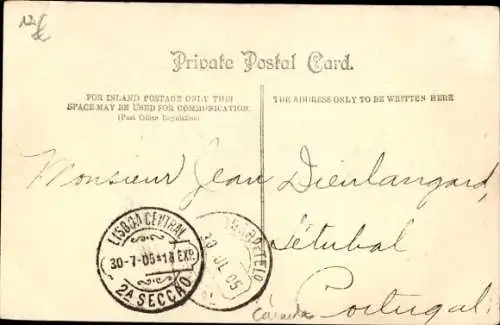 Private Postal Card.
FOR INLAND POSTAGE ONLY THIS
SPACE MAY BE USED FOR COMMUNICATION.
(Post Office Regulation)
THE ADDRESS ONLY TO BE WRITTEN HERE
Monsieur Jean Dienlangard,
Sétubal
Portugal.
LISBOA CENTRAL
30-7-05*1ª EXP.
2A SECÇÃO
30 JL 05